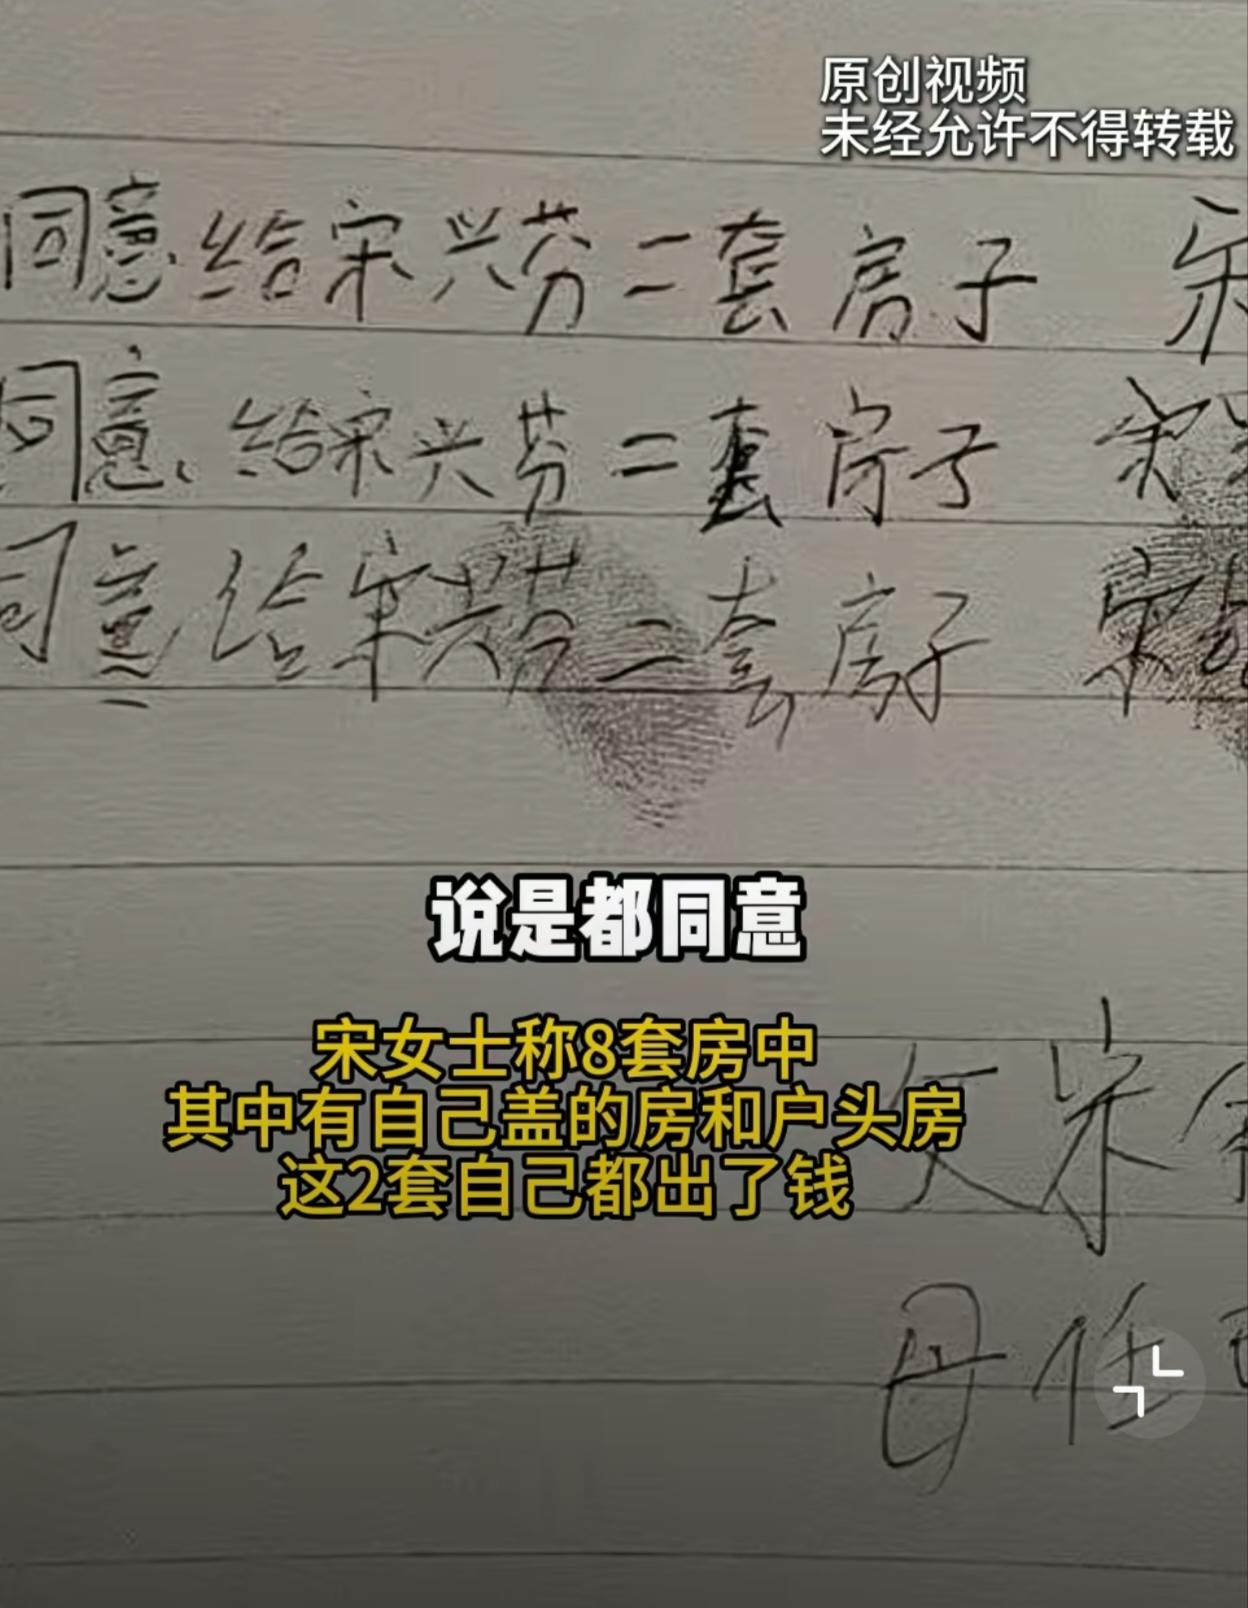 原创视频
未经允许不得转载
同意给宋兴芬二套房子 宋
同意给宋兴芬二套房子 宋
同意给宋兴芬二套房子 宋
说是都同意
宋女士称8套房中
其中有自己盖的房和户头房
这2套自己都出了钱
父宋
母任